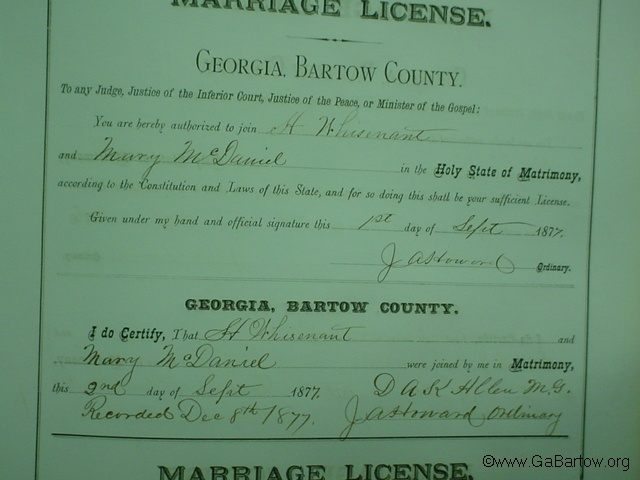 MARRIAGE LICENSE.
GEORGIA, BARTOW COUNTY.
To any Judge, Justice of the Inferior Court, Justice of the Peace, or Minister of the Gospel:
You are hereby authorized to join H Whisenant
and Mary McDaniel in the Holy State of Matrimony,
according to the Constitution and Laws of this State, and for so doing this shall be your sufficient License.
Given under my hand and official signature this 1st day of Sept 1877.
J A Howard Ordinary.
GEORGIA, BARTOW COUNTY.
I do Certify, That H Whisenant and
Mary McDaniel were joined by me in Matrimony,
this 2nd day of Sept 1877. D A K Allen M.G.
Recorded Dec 8th 1877. J A Howard Ordinary
MARRIAGE LICENSE.
©www.GaBartow.org